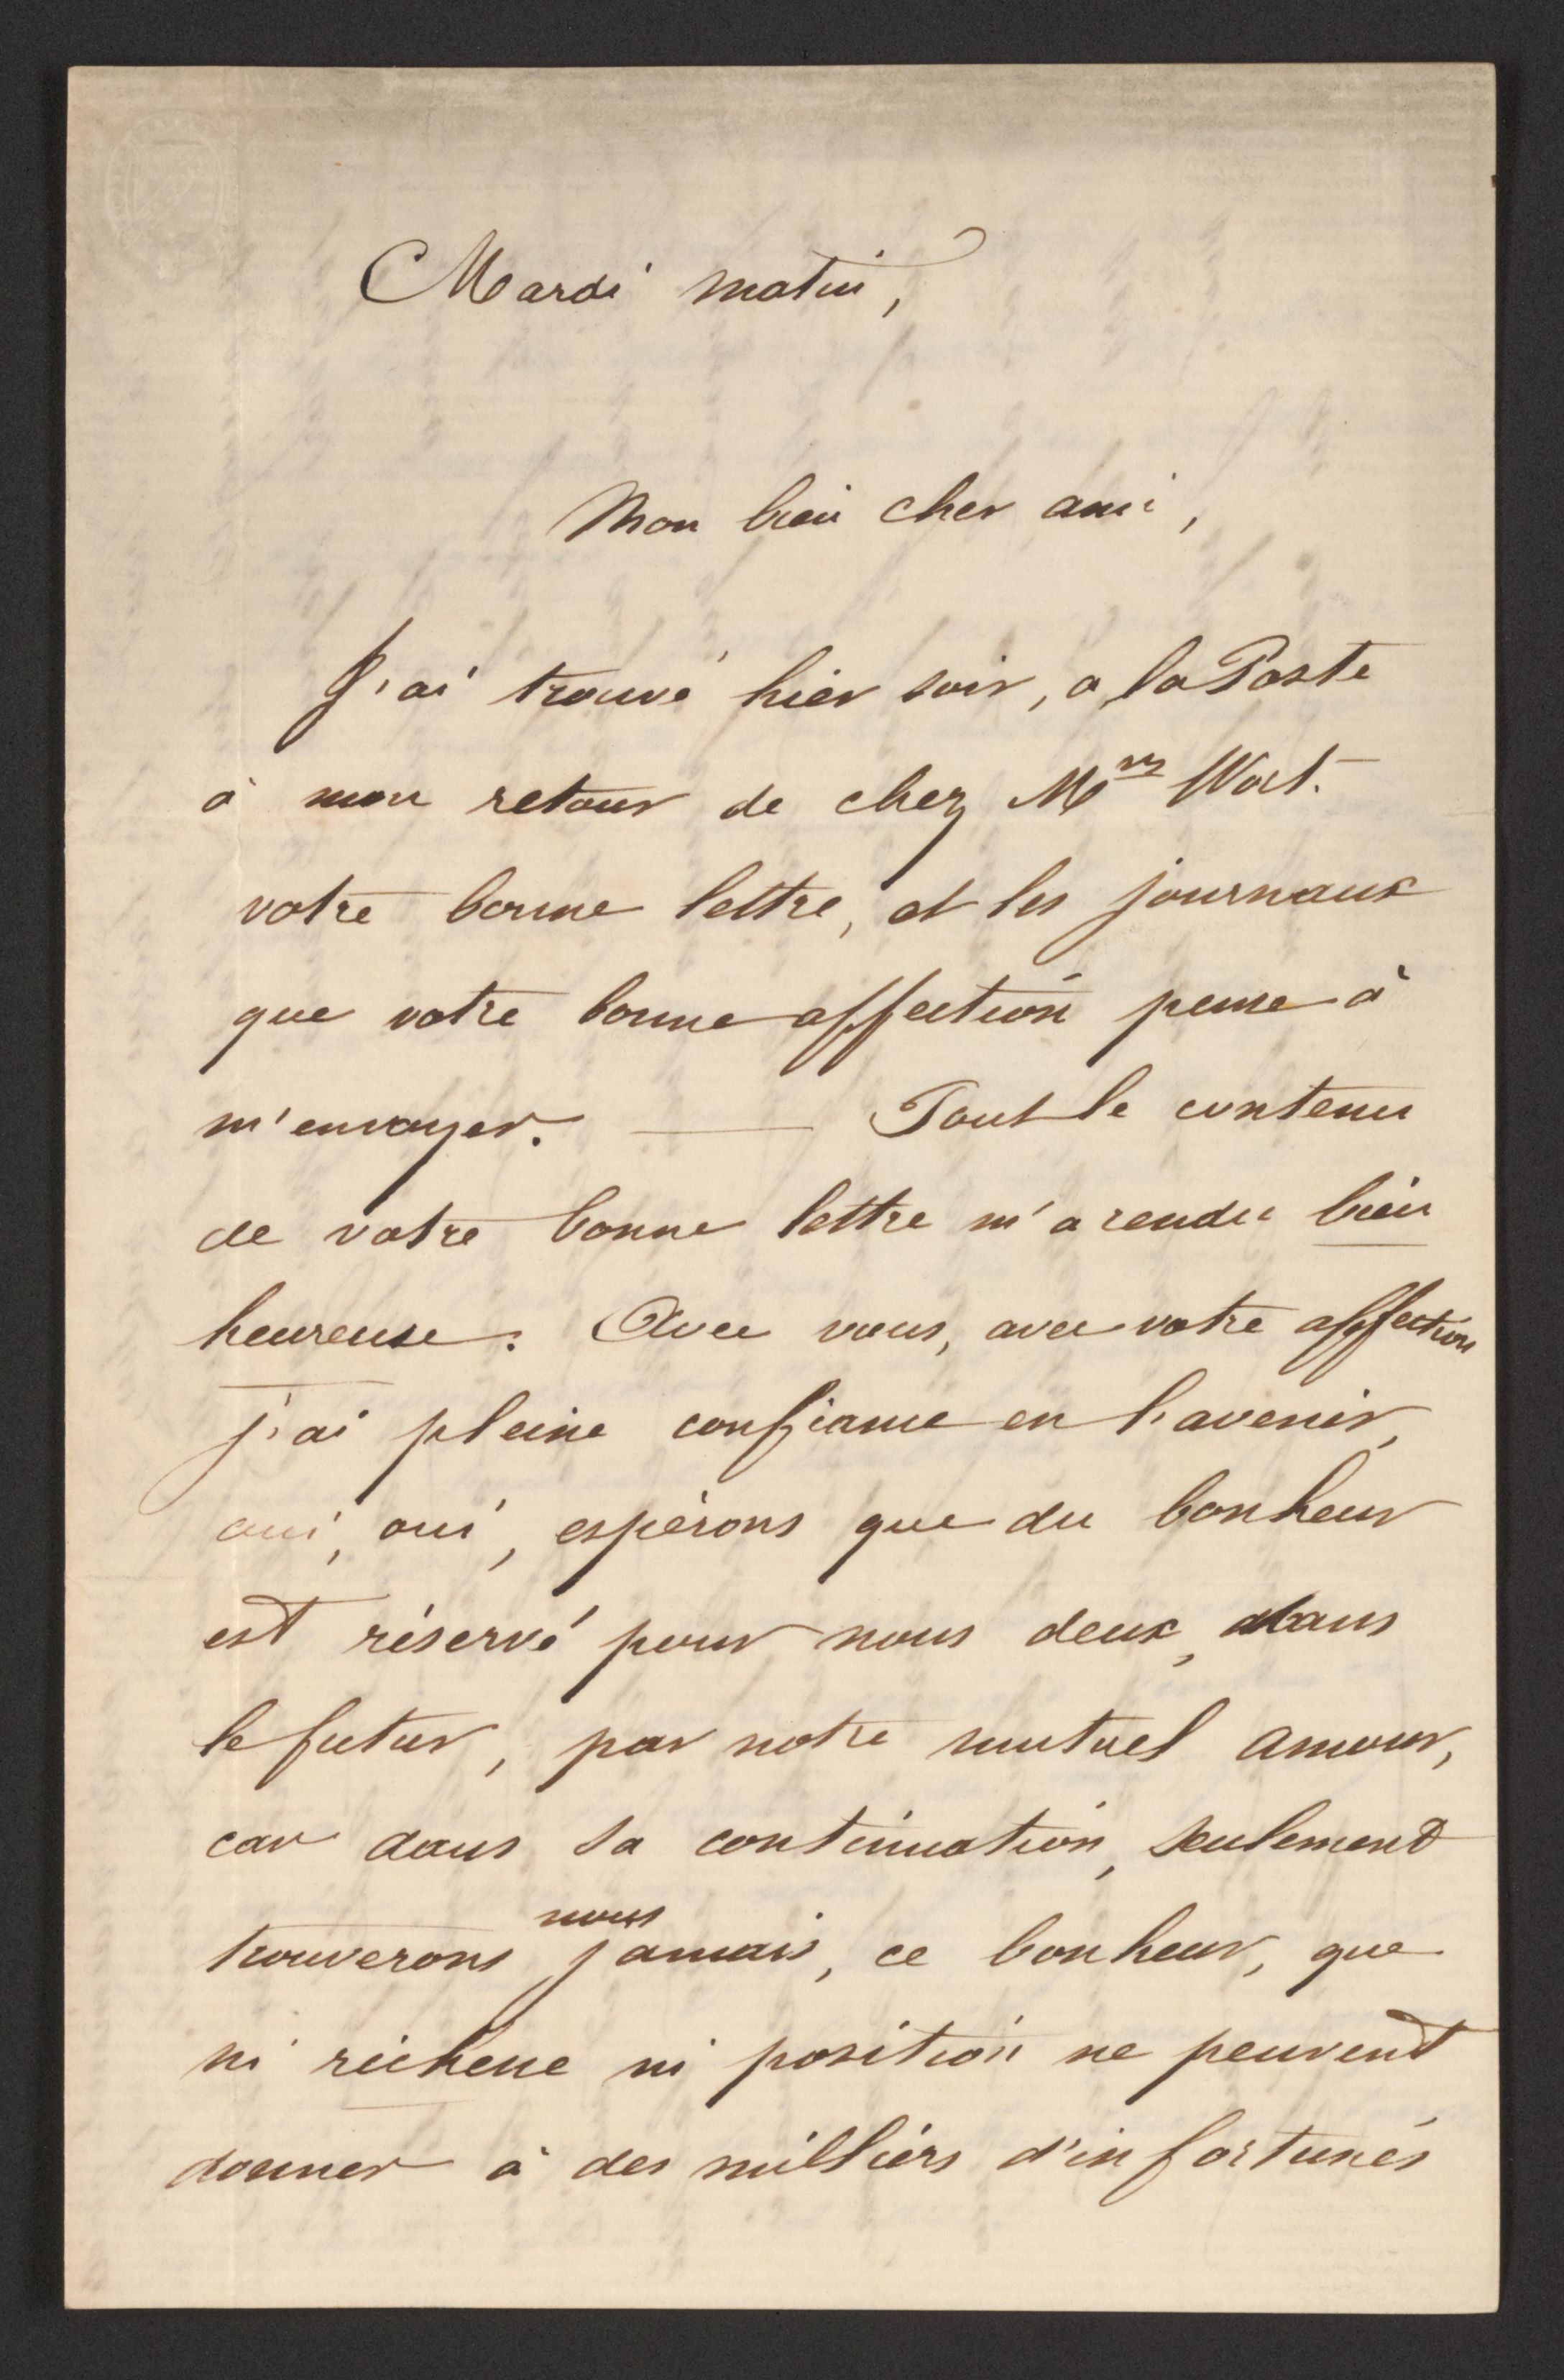 Mardi matin,
Mon bien cher ami,
J'ai trouvé hier soir, a la Poste
à mon retour de chez M
votre bonne lettre, et les journaux
que votre bonne affection pense à
m'envoyer. — Tout le contenu
de votre bonne lettre m'a rendu bien
heureuse. Avec vous, avec votre affection
j'ai pleine confiance en l'avenir,
oui, oui, espérons que du bonheur
est réservé pour nous deux, dans
le futur, par notre mutuel amour,
car dans sa continuation, seulement
nous
trouverons jamais, ce bonheur, que
ni richesse ni position ne peuvent
donner à des milliers d'infortunés